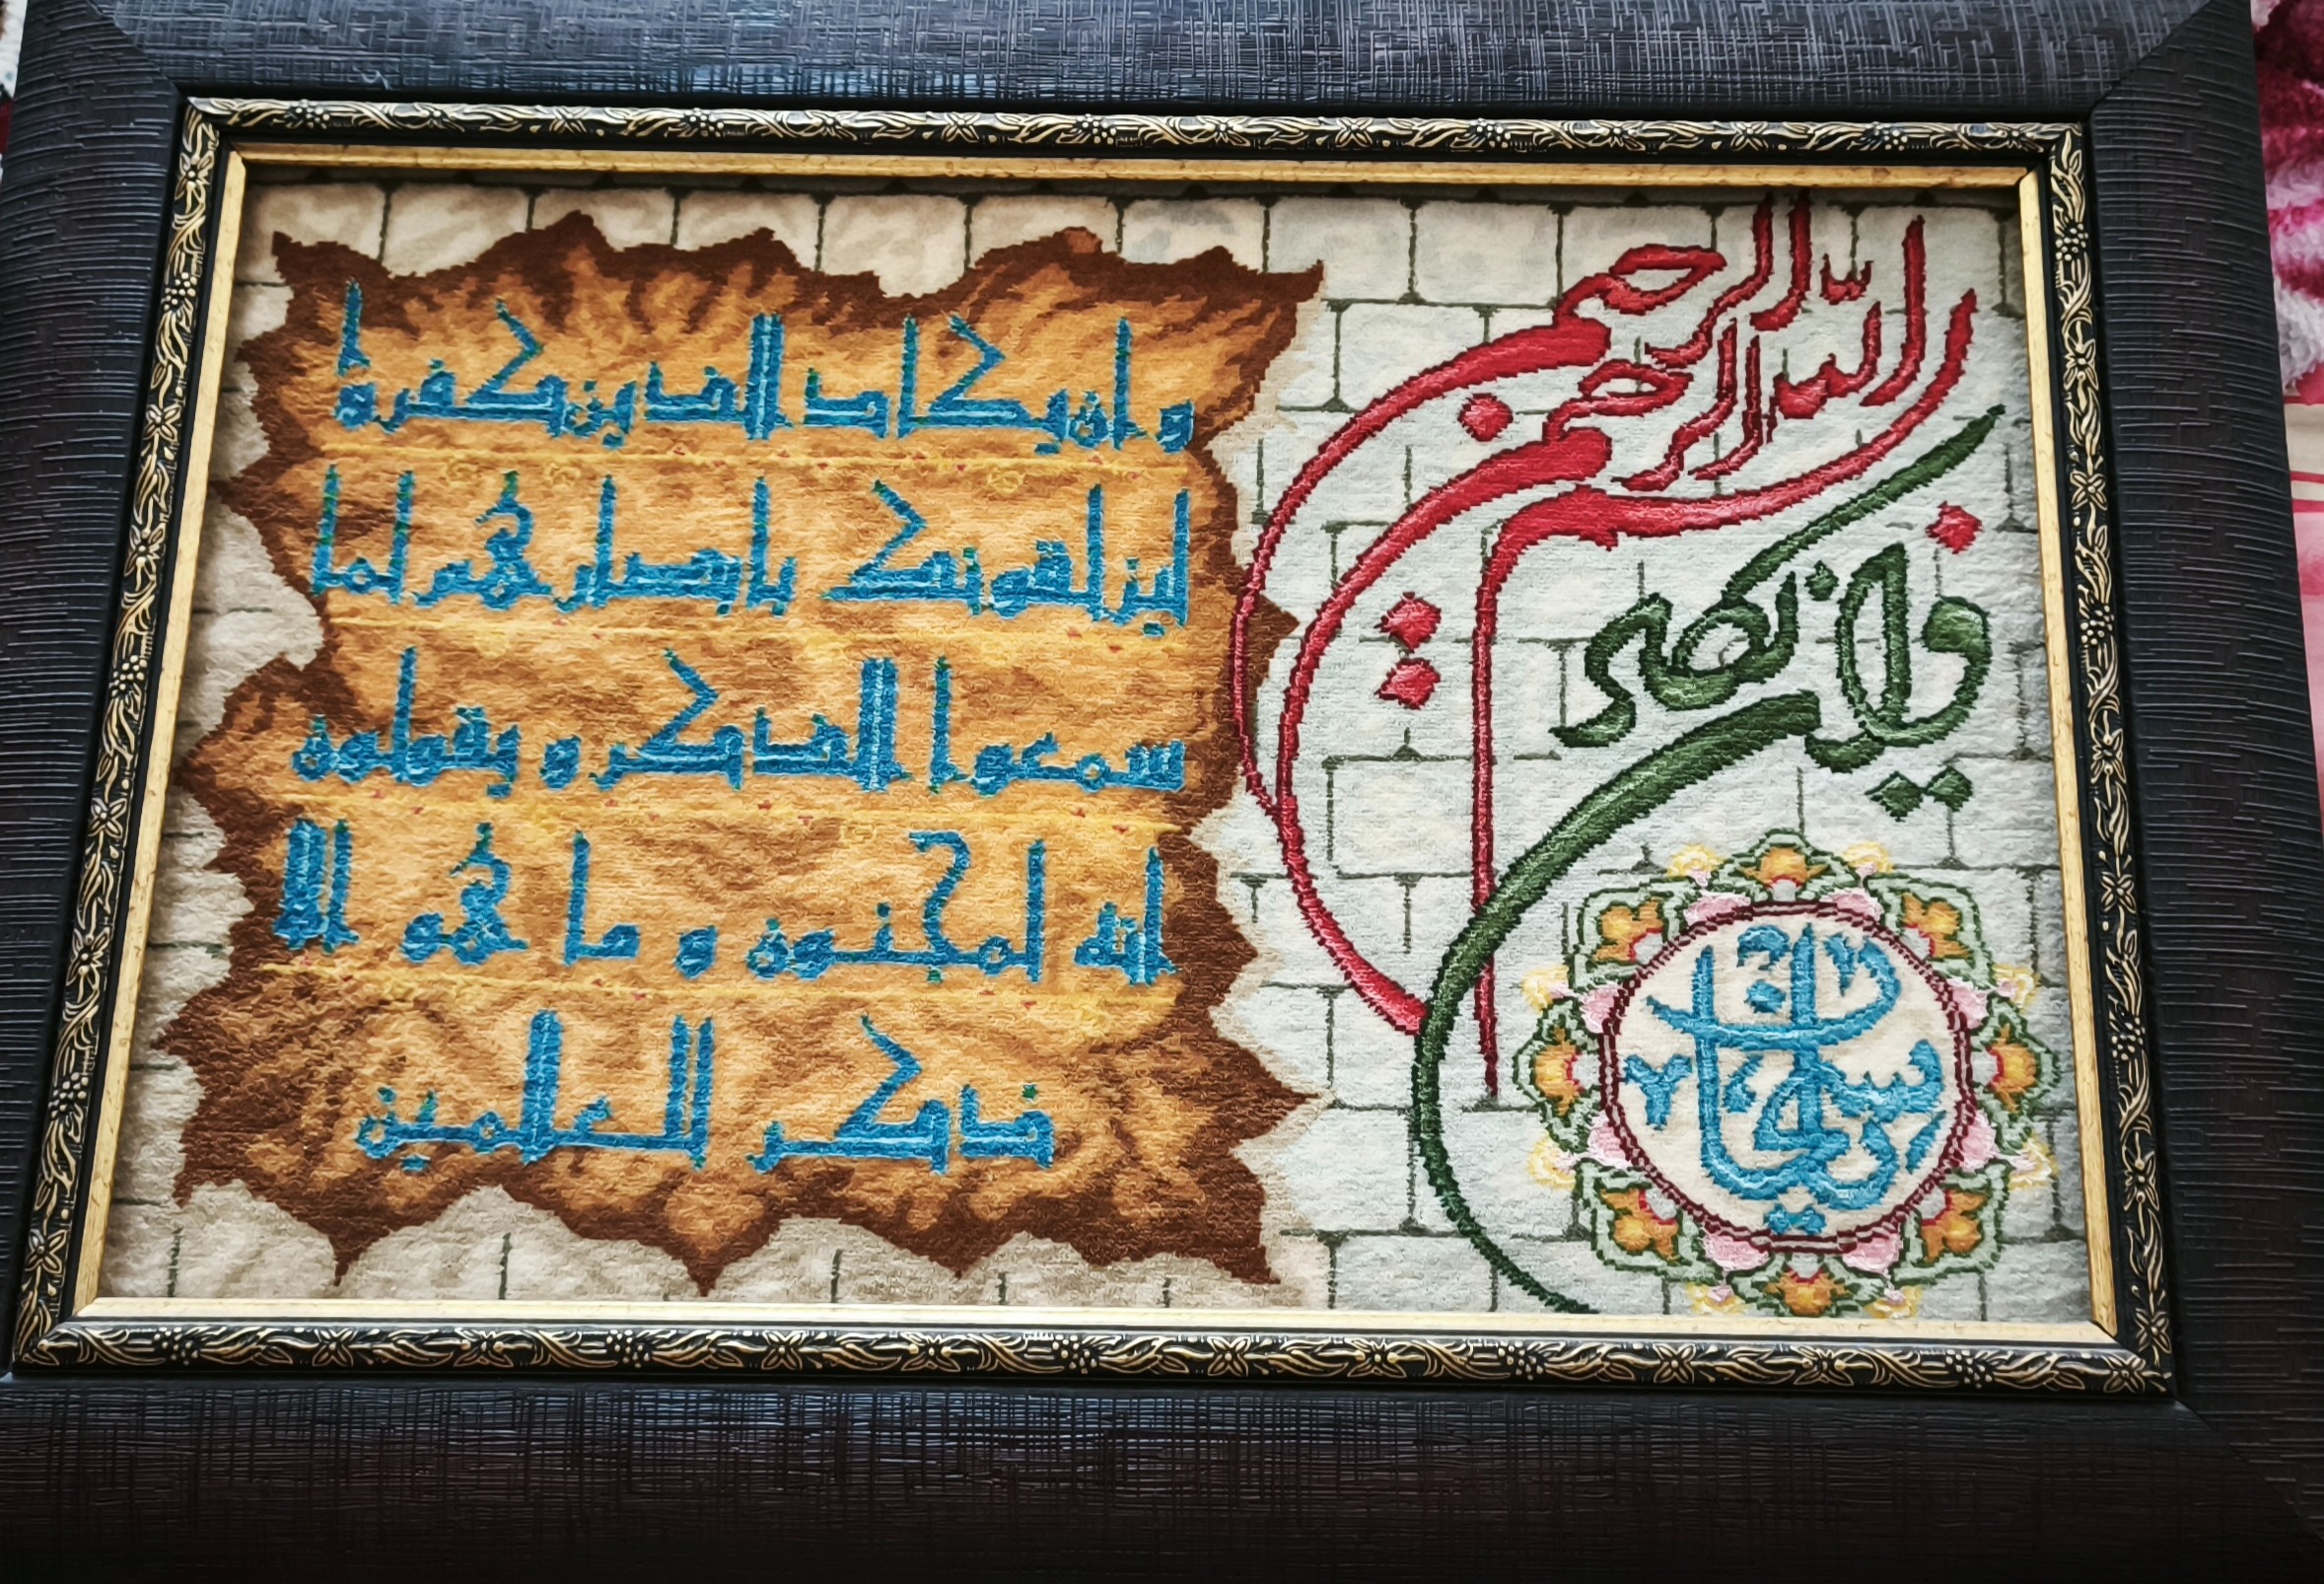 بسم الله الرحمن الرحیم
وان یکاد
وان یکاد الذین کفروا
لیزلقونک بابصارهم لما
سمعوا الذکر و یقولون
انه لمجنون و ما هو الا
ذکر للعلمین